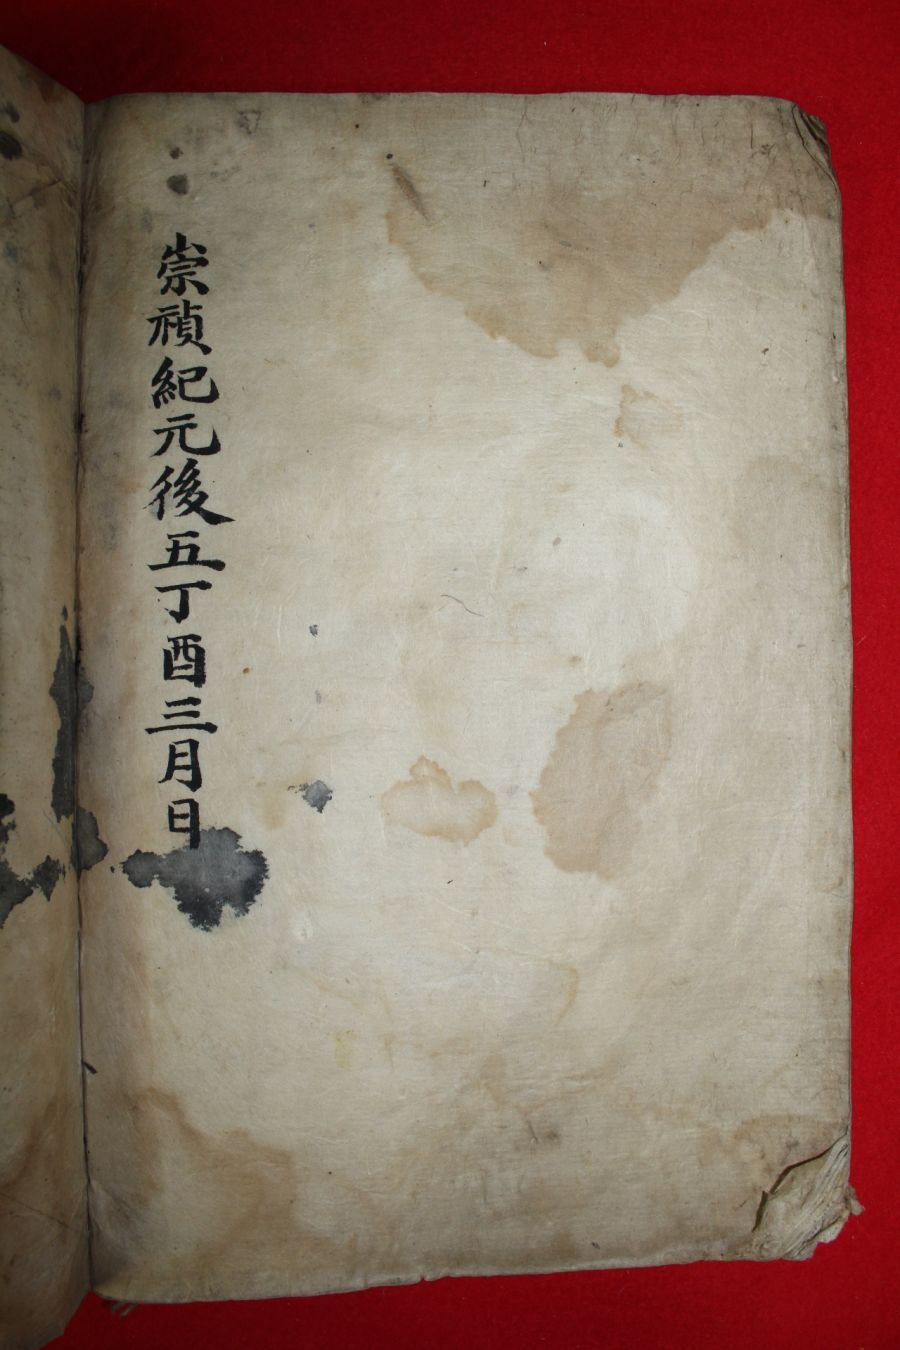 崇禎紀元後五丁酉三月日